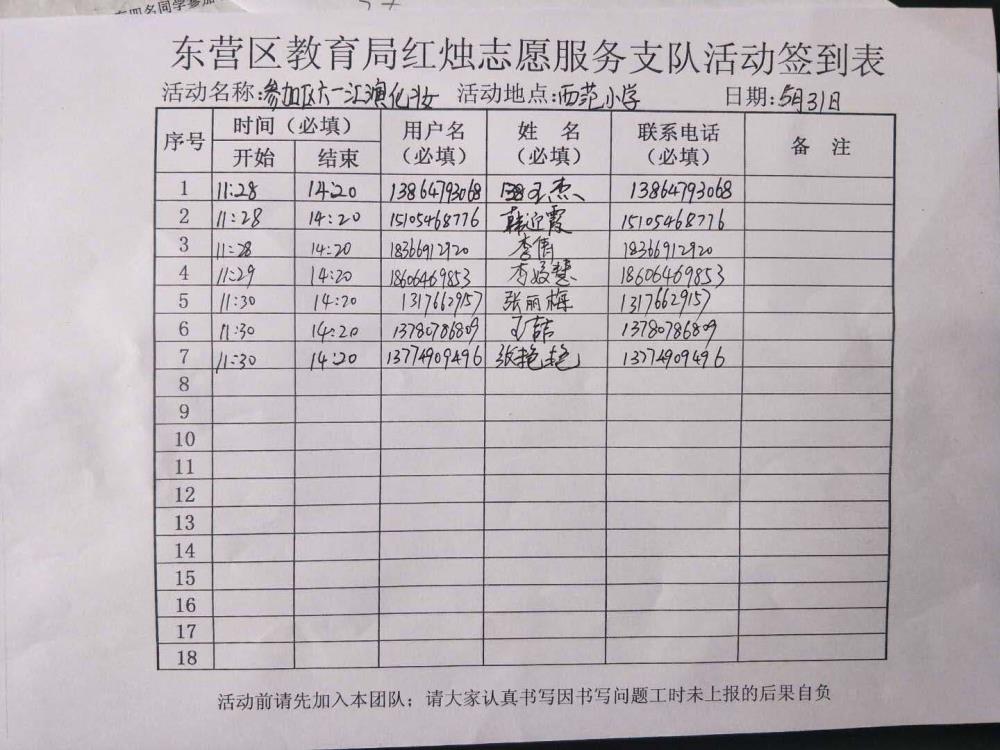 东营区教育局红烛志愿服务支队活动签到表
活动名称:参加区六一汇演化妆 活动地点:西范小学 日期:5月31日
序号 时间(必填) 用户名(必填) 姓名(必填) 联系电话(必填) 备注
开始 结束
1 11:28 14:20 13864793068 王杰 13864793068
2 11:28 14:20 15105468776 韩迎霞 15105468776
3 11:28 14:20 18366912920 李倩 18366912920
4 11:29 14:20 18606469853 李姣慧 18606469853
5 11:30 14:20 1317662957 张丽梅 13176629157
6 11:30 14:20 13780786809 王喆 13780786809
7 11:30 14:20 13774909496 张艳艳 13774909496
8
9
10
11
12
13
14
15
16
17
18
活动前请先加入本团队;请大家认真书写因书写问题工时未上报的后果自负